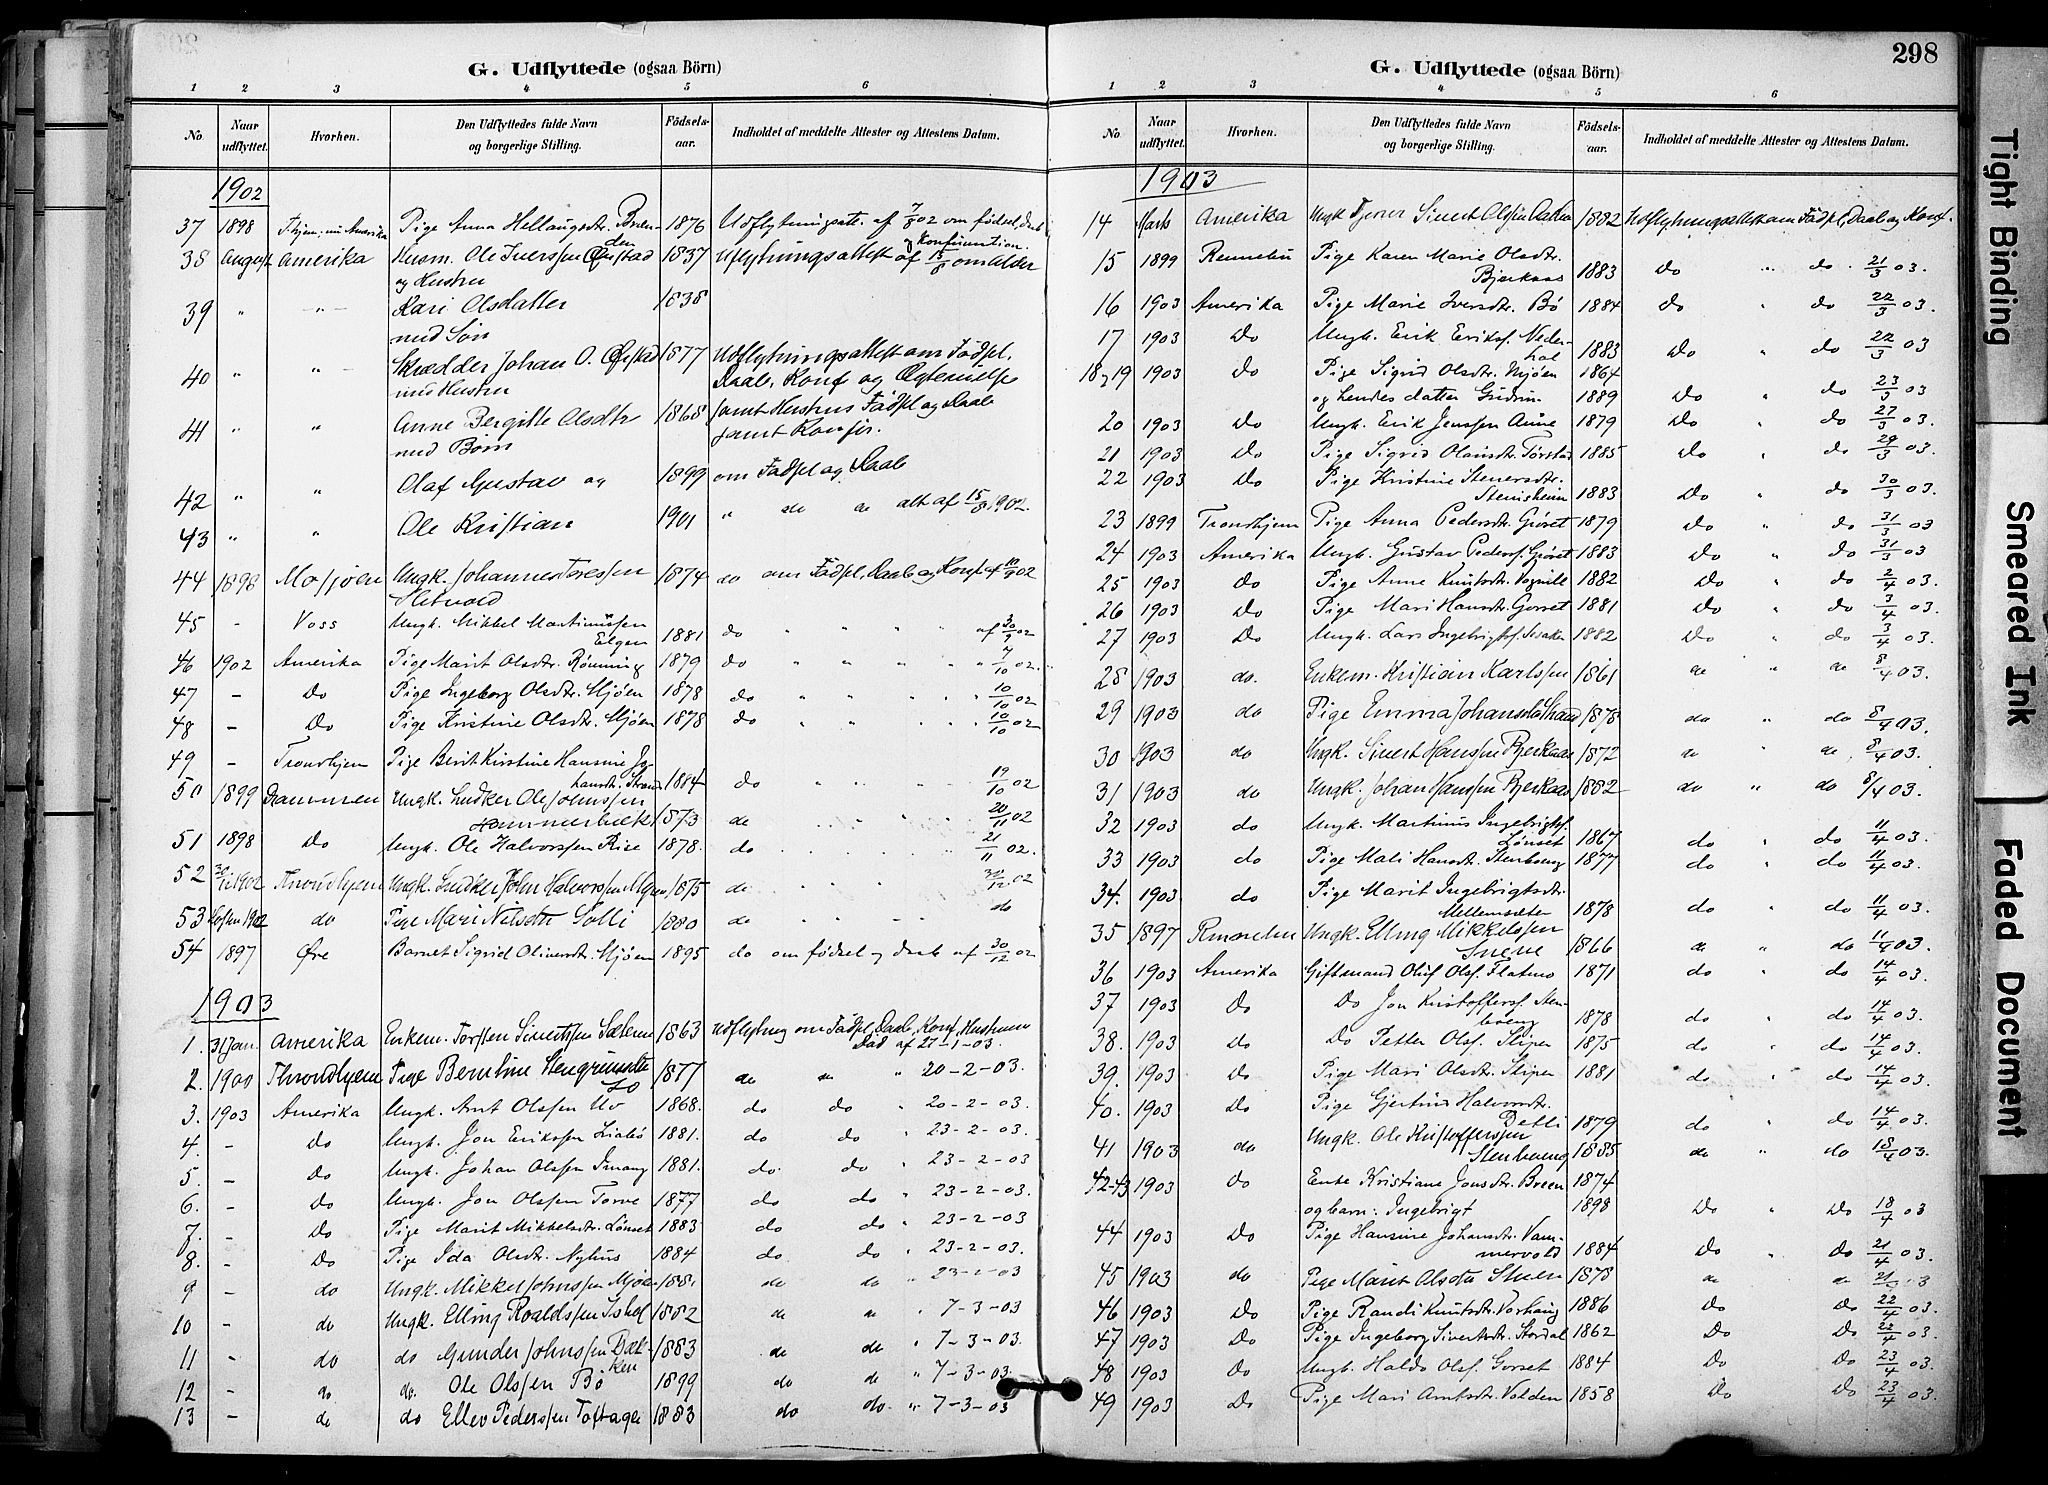 G. Udflyttede (ogsaa Börn)
1 2 3 4 5 6
No. Naar udflyttet. Hvorhen. Den Udflyttedes fulde Navn og borgerlige Stilling. Födsels-aar. Indholdet af meddelte Attester og Attestens Datum.
1902
37 1898 Amerika Pige Anna 1876 Udflytningsatt. af 7/8 02 om födsel, daab
og Konfirmation.
38 August Amerika Husm. Ole Iverssen Øfstad 1837 Udflytningsattest af 15/8 om Alder
og Hustru
39 " " Kari Olsdatter 1838
med Søn
40 " " Skrædder Johan O. Øfstad 1877 Udflytningsattest om Födsel,
med Hustru Daab, Konf og Egteskab
41 " " Anne Bergitte Olsdtr 1868 samt Hustrus Födsel og Daab
med Børn samt Konfir.
42 " " Olaf Gustav og 1899 om Födsel og Daab
43 " " Ole Kristian 1901 " do do alt af 15/8 1902.
44 1898 Mosjøen Ungk. Johannes Toressen 1874 do om Födsel, Daab og Konf
45 - Voss Ungk. Mikkel Martinussen
Elgen 1881 do " " " af 30/9 02
46 1902 Amerika Pige Marit Olsdtr. Rönning 1879 do " " " " 7/10 02.
47 - Do Pige Ingeborg Olsdtr. Mjøen 1878 do " " " " 10/10 02
48 - Do Pige Kristine Olsdtr. Mjøen 1878 do " " " " 10/10 02
49 - Tronhjem Pige Berit Kirstine Hansine Jo-
hansdtr. Strand 1884 do " " " 19/10 02
50 1899 Drammen Ungk. Snedker Ole Johnssen
Hammerbæk 1873 do " " " 20/11 02
51 1898 Do Ungk. Ole Halvorssen Rise 1878. do 21/11 02.
52 30/12 1902 Throndhjem Ungk. Snedker John Halvorssen 1875 do " " 30/12 02
53 1902 do Pige Mari Nilsdtr Solli 1880 do " " do
54 1897 Øre Barnet Sigrid Oliversdtr. Mjøen 1895 do om födsel og daab af 30/12 02
1903
1. 31 Jan. Amerika Enkem. Torsten Sivertssen Sæterm 1863 Udflytning om Födsel, Daab, Konf, Hustruens
Död af 27-1-03.
2. 1900 Throndhjem Pige Berntine Stengrimsdtr
Lo 1877 do do " 20-2-03.
3. 1903 Amerika Ungk. Arnt Olssen Uv 1868. do do " 20-2-03.
4. - Do Ungk. Jon Erikssen Liabö 1881. do do " 23-2-03.
5. - Do Ungk. Johan Olssen 1881. do do " 23-2-03.
6. - Do Ungk. Jon Olssen Torve 1877 do do " 23-2-03.
7. - Do Pige Marit Mikkelsdtr. Lönset 1883 do do " 23-2-03
8. - Do Pige Ida Olsdtr. Nyhus 1884 do do " 23-2-03.
9 - do Ungk. Mikkel Johnssen Mjöen 1881. do do " 23-2-03
10 - do Ungk. Elling Roaldssen Ishol 1882 do do " 7-3-03
11 - do do Gunder Johnssen Dæl-
ken 1883 do do " 7-3-03.
12 - do do. Ole Olssen Bö 1899 do do " 7-3-03.
13 - do do Ellev Pederssen Toftager 1883 do do. " 7-3-03
298
G. Udflyttede (ogsaa Börn)
1 2 3 4 5 6
No Naar udflyttet. Hvorhen. Den Udflyttedes fulde Navn og borgerlige Stilling. Födsels-aar. Indholdet af meddelte Attester og Attestens Datum.
1903
14 Marts Amerika Ungk Sivert Olssen 1882 Udflytningsattest om Födsel, Daab og Konf.
15 1899 Rennebu Pige Karen Marie Olsdtr.
Bjerkaas 1883 do " do. 21/3 03.
16 1903 Amerika Pige Marie Iversdtr. Bö 1884 do " do 22/3 03
17 1903 Do Ungk. Erik Eriksf. Neder-
hol 1883 Do " do 22/3 03
18 og 19 1903 do Pige Sigrid Olsdtr. Mjöen 1864
og hendes datter Gudrun 1889 Do " do 23/3 03
20 1903 Do Ungk. Erik Jenssen Aune 1879 Do " do 27/3 03
21 1903 Do Pige Sigrid Olsdtr. 1885 Do " do 29/3 03.
22 1903 Do Pige Kristine Stenersdtr.
Stenisheim 1883 Do " do 30/3 03.
23 1899 Tronhjem Pige Anna Pedersdtr. Gröset 1879 do " do 31/3 03
24 1903 Amerika Ungk. Gustav Pedersf. Gröset 1883 do " do 31/3 03
25 1903 Do Pige Anne Knutsdtr. Vognill 1882 Do " do 2/4 03.
26 1903 Do Pige Mari Hansdtr. Gorset 1881 Do " do 3/4 03.
27 1903 Do Ungk. Lars Ingebrigtsf. 1882 Do " do 3/4 03.
28 1903 do. Enkem. Kristian Karlssen 1861 do " do 8/4 03.
29 1903 do Pige Emma Johansdtr Strand 1878 do " do 8/4 03.
30 1903 do Ungk. Sivert Hanssen Bjerkaas 1872 do " do 8/4 03.
31 1903 do Ungk. Johan Hanssen Bjerkaas 1882 do " do 8/4 03.
32 1903 do Ungk. Martinus Ingebrigtsf.
Lönset 1867 do " do 11/4 03.
33 1903 do Pige Mali Hansdtr. Stenboeng 1877 do " do 11/4 03.
34. 1903 do Pige Marit Ingebrigtsdtr.
Mellemsæter 1878 do " do 11/4 03.
35 1897 Ungk. Elling Mikkelssen
1866 do " do 11/4 03.
36 1903 Amerika Giftmand Oluf Olsf. Flatmo 1871 do " do 14/4 03.
37 1903 Do Do Jon Kristoffersf. Sten-
boeng 1878 do " do 14/4 03.
38. 1903 Do Do Petter Olsf. Stipen 1875 do " do 14/4 03.
39. 1903 Do Pige Mari Olsdtr. Stipen 1881 do " do 14/4 03.
40. 1903 Do Pige Gjertrud Halvorsdtr.
Detli 1879 do " do 14/4 03.
41 1903 do Ungk. Ole Kristofferssen
Stenboeng 1885 do " do 18/4 03.
42-43 1903 do Enke Kristiane Jonsdtr. Breen 1874
og barn: Ingebrigt 1898 Do " Do 18/4 03
44 1903 Do Pige Hansine Johansdtr. Vam-
mervold 1884 Do " Do 21/4 03.
45 1903 do Pige Marit Olsdtr Stuen 1878 do " do 21/4 03
46 1903 Do Pige Randi Knutsdtr. Vorhaug 1886 Do " Do 22/4 03.
47 1903 Do Pige Ingeborg Sivertsdtr. Stordal 1862 Do " Do 22/4 03.
48 1903 Do Ungk. Haldo Olsf. Gorset 1884 Do " Do 23/4 03.
49 1903 Do Pige Mari Arntsdtr. Volden 1858 Do " Do 23/4 03.
Tight Binding
Smeared Ink
Faded Document